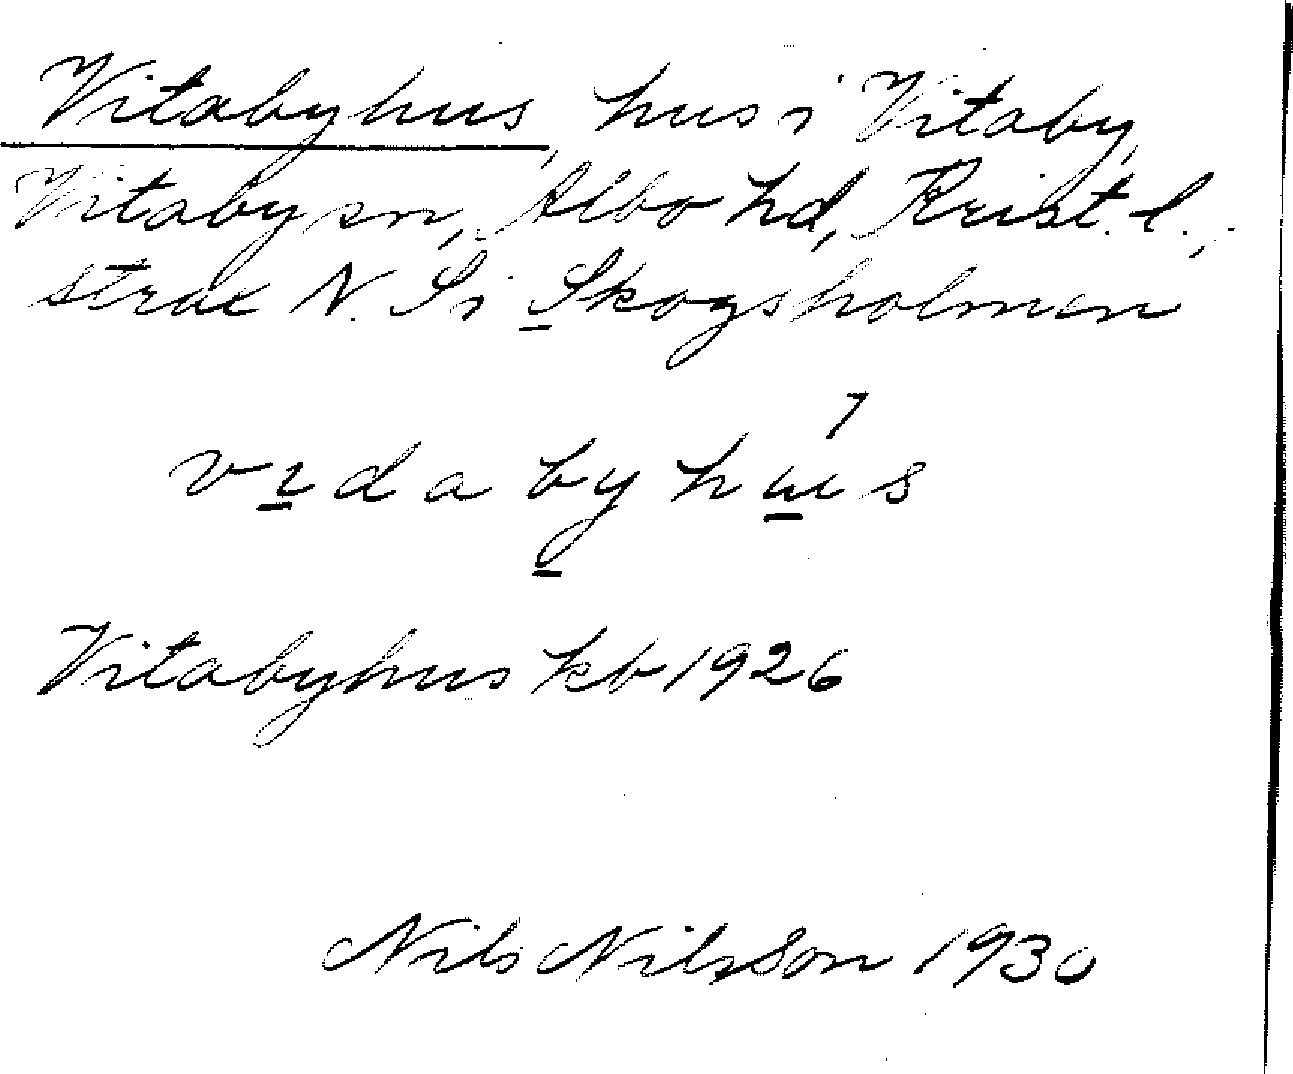 Vitabyhus, hus i Vitaby,
Vitaby sn, Albo hd, Krist. l.,
strax N. Si Skogsholmen
vidabyhus
Vitabyhus kb 1926
Nils Nilsson 1930